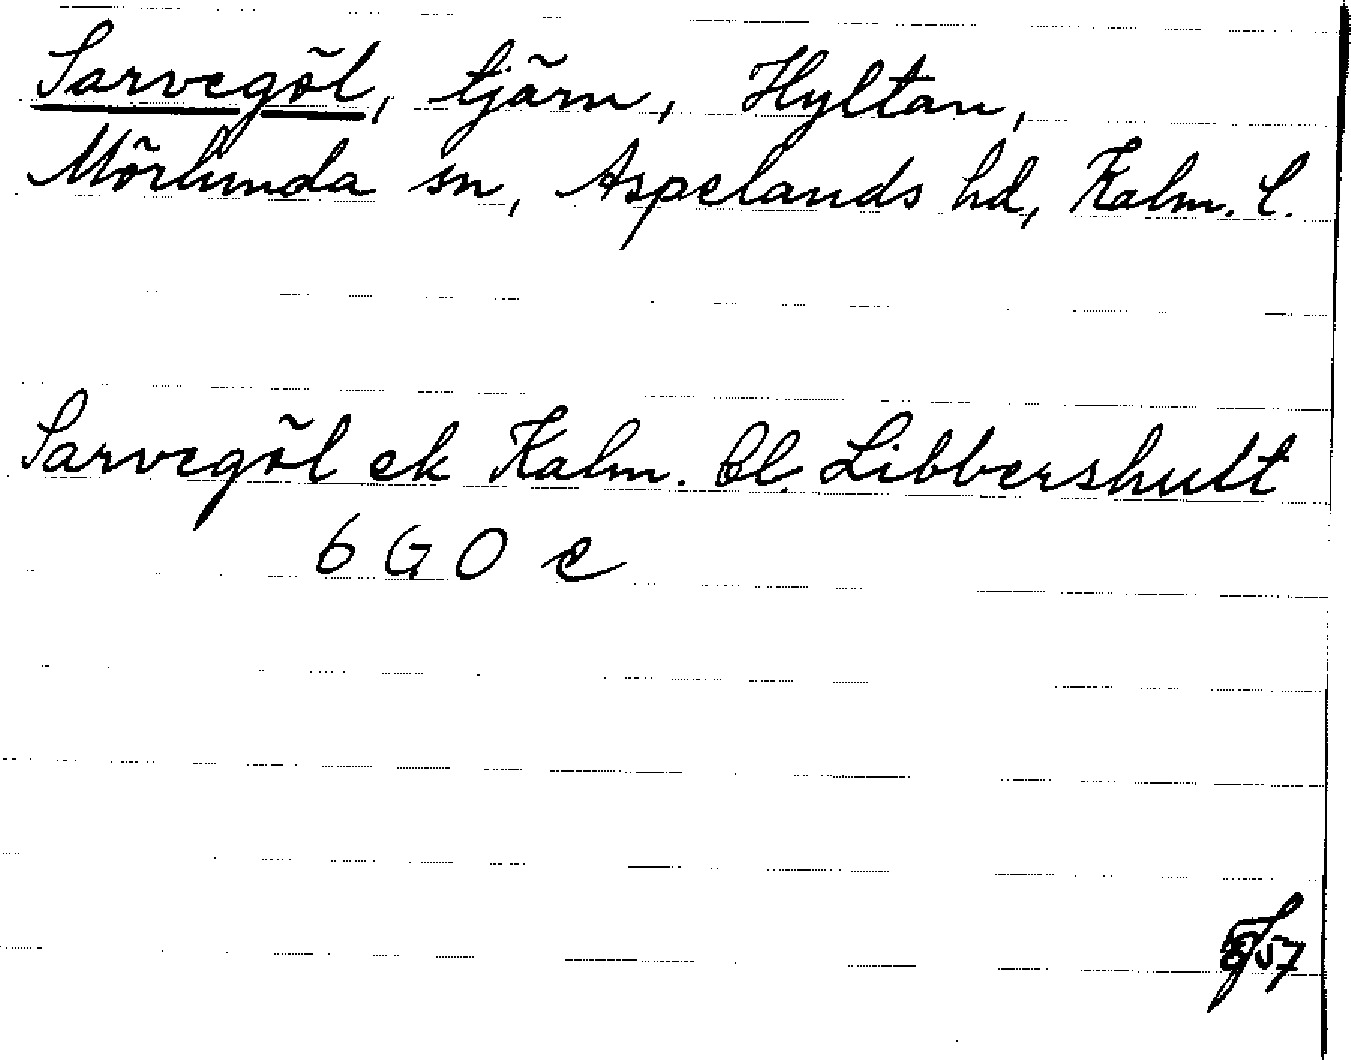 Sarvegöl, tjärn, Hyltan,
Mörlunda sn, Aspelands hd, Kalm. l.
Sarvegöl ek Kalm. bl. Libbershult
6 G O c
57